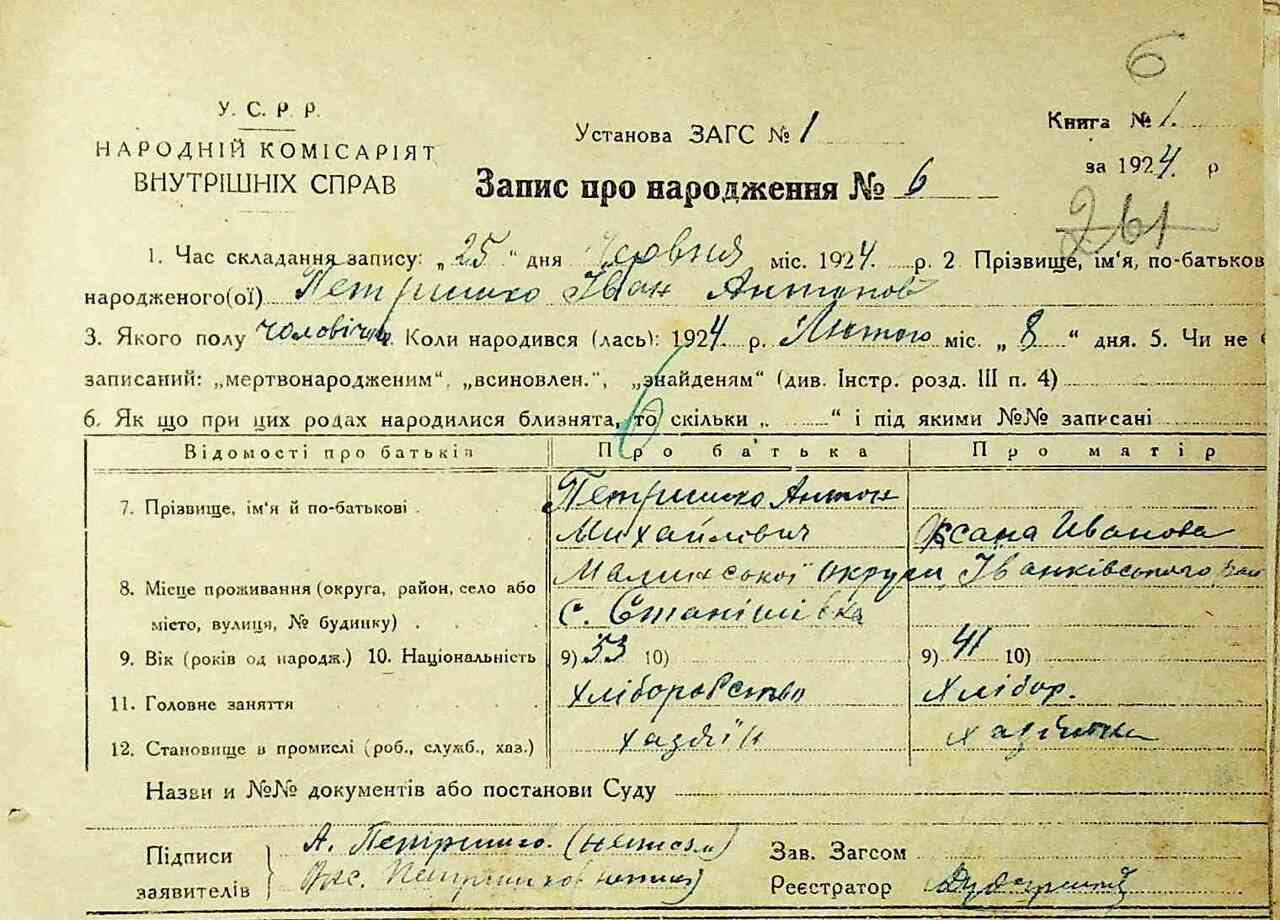 6
У. С. Р. Р.
НАРОДНІЙ КОМІСАРІЯТ
ВНУТРІШНІХ СПРАВ
Установа ЗАГС № 1
Книга № 1.
за 1924. р
Запис про народження № 6
261
1. Час складання запису: „25“ дня Червня міс. 1924. р. 2 Прізвище, ім'я, по-батьков
народженого(ої) Петришко Іван Антонов
3. Якого полу чоловічи. Коли народився (лась): 1924. р. Лютого міс. „8“ дня. 5. Чи не
записаний: „мертвонародженим“, „всиновлен.“, „знайденям“ (див. Інстр. розд. III п. 4)
6. Як що при цих родах народилися близнята, то скільки „ “ і під якими №№ записані
6
Відомості про батьків Про батька Про матір
7. Прізвище, ім'я й по-батькові Петришко Антон
Михайлович Оксана Иванова
8. Місце проживання (округа, район, село або Малинської округи, Іванківського
місто, вулиця, № будинку) с. Станішівка
9. Вік (років од народж.) 10. Національність 9) 53 10) 9) 41 10)
11. Головне заняття Хліборобство Хлібор.
12. Становище в промислі (роб., служб., хаз.) хазяїн хазяйка
Назви и №№ документів або постанови Суду
Підписи
заявителів
А. Петришко.
Окс.
Зав. Загсом
Реєстратор